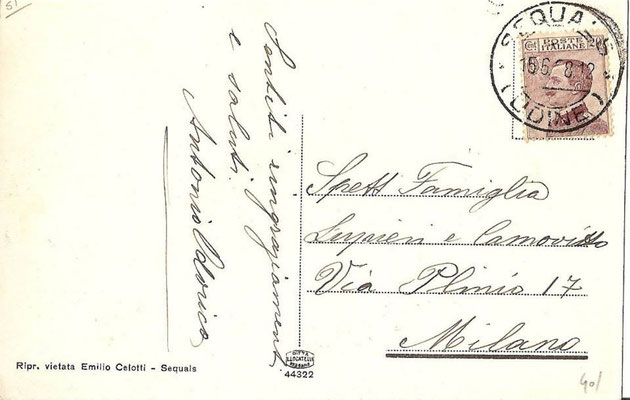 51
Sentiti ringraziamenti
e saluti.
Antonio Odorico
SEQUALS
POSTE
ITALIANE
15.6.28.12
(UDINE)
Spett Famiglia
Lupieri e
Via Plinio 17
Milano
Ripr. vietata Emilio Celotti - Sequals
DITTA
44322
40/